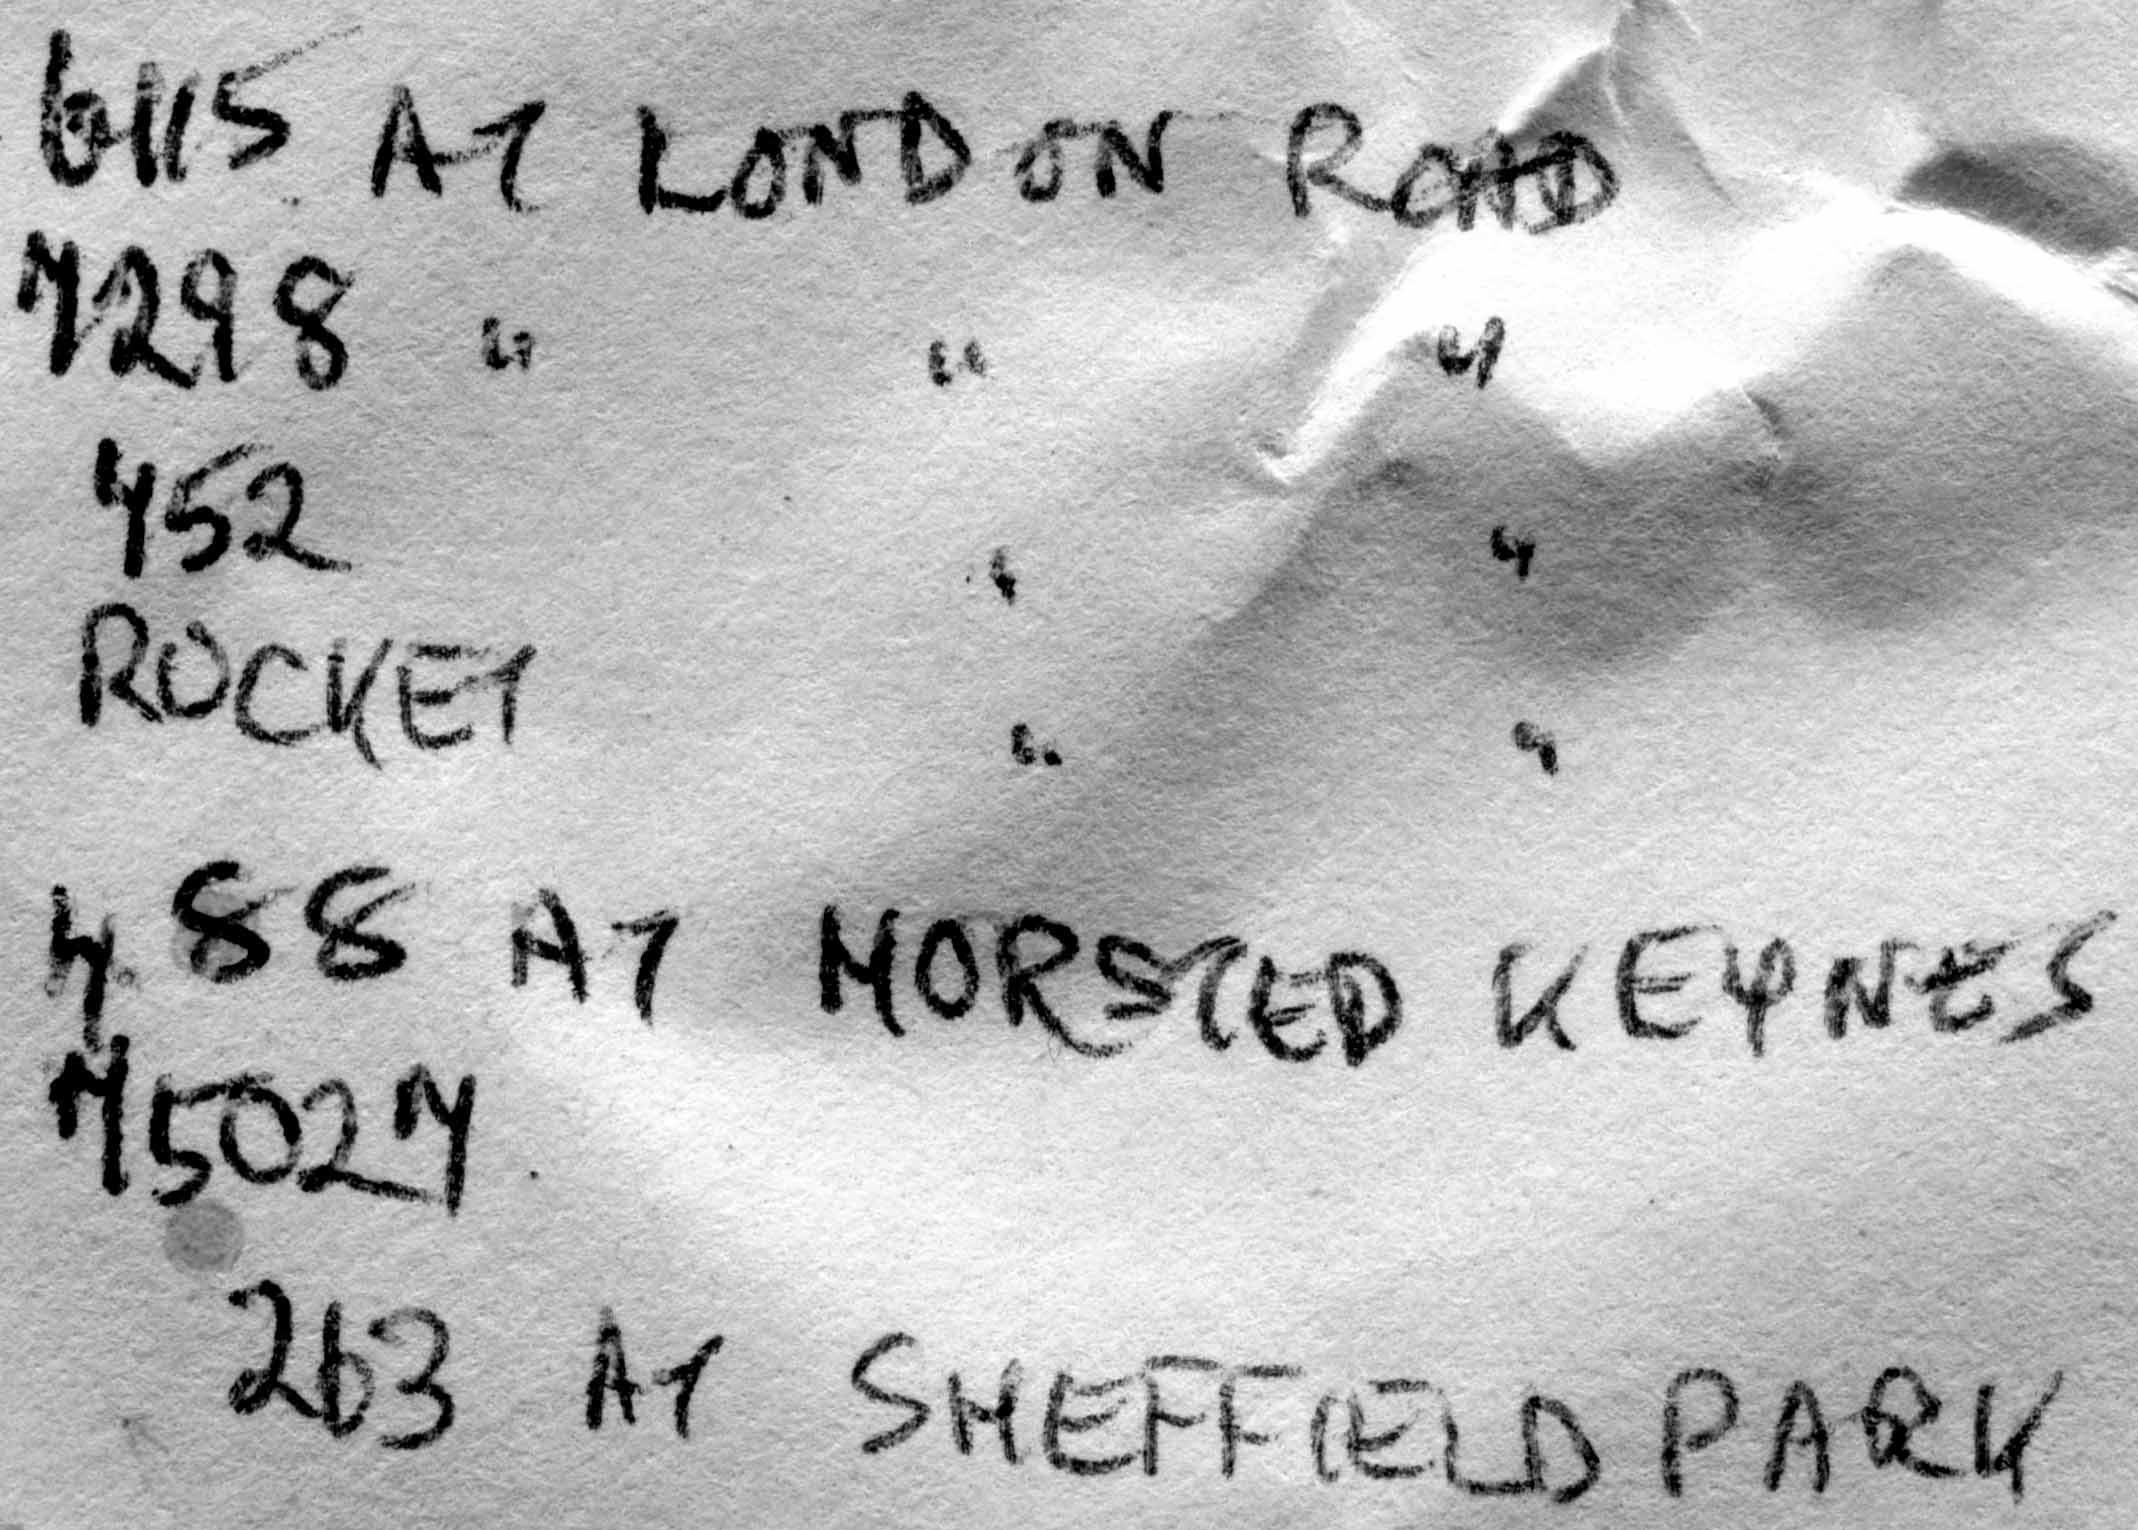 6115 AT LONDON ROAD
7298 " " "
452 " "
ROCKET " "
488 AT HORSTED KEYNES
75027
263 AT SHEFFIELD PARK